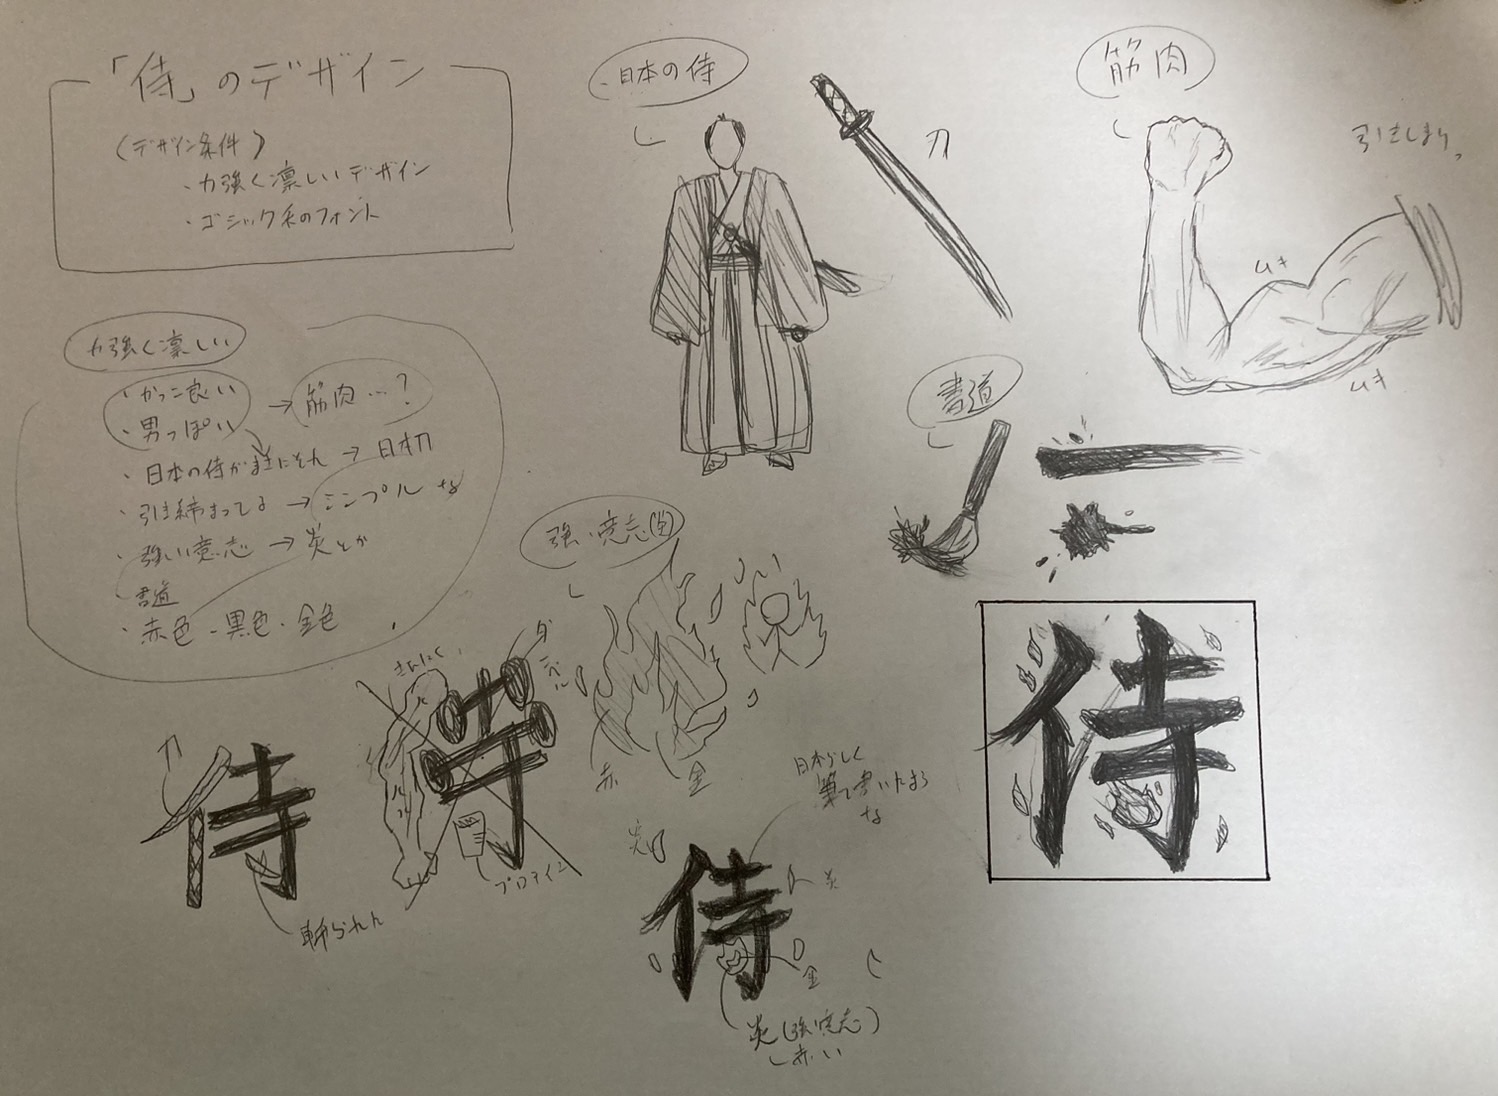 「侍」のデザイン
(デザイン条件)
・力強く凛しいデザイン
・ゴシック系のフォント
力強く凛しい
・かっこ良い
・男っぽい
→筋肉…?
・日本の侍がまさにそれ→日本刀
・引き締まってる→シンプルな
・強い意志→炎とか
・書道
・赤色・黒色・金色
・日本の侍
刀
筋肉
引きしまり
ムキ
ムキ
書道
強い意志
赤
金
刀
侍
斬られた
きんにく
ダンベル
侍
プロテイン
日本らしく
筆で書いたような
炎
侍
炎
金
炎(強い意志)
赤い
侍